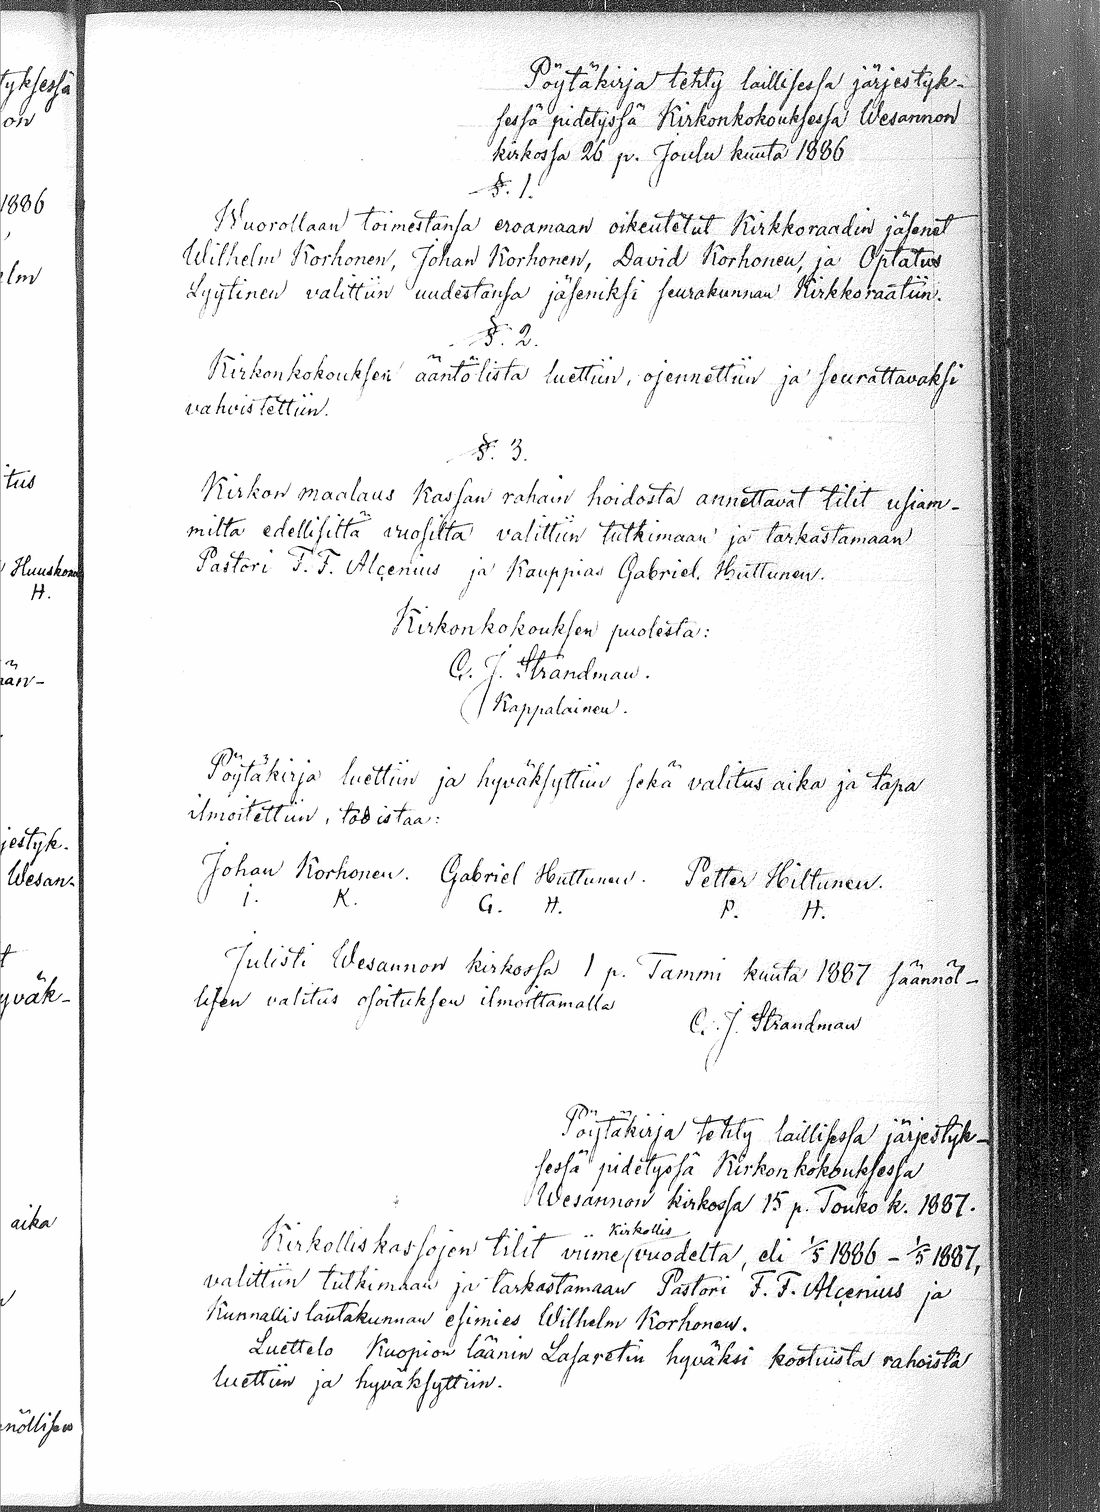 tyksessä
on
1886
elm
itus
Huuskonen
H.
än-
jestyk-
Wesan-
t
yväk-
aika
nöllisen
Pöytäkirja tehty laillisessa järjestyk-
sessä pidetyssä Kirkonkokouksessa Wesannon
kirkossa 26 p. Joulu kuuta 1886
§. 1.
Wuorollaan toimestansa eroamaan oikeutetut Kirkkoraadin jäsenet
Wilhelm Korhonen, Johan Korhonen, David Korhonen, ja Optatus
Lyytinen valittiin uudestansa jäseniksi seurakunnan Kirkkoraatiin.
§. 2.
Kirkonkokouksen ääntölista luettiin, ojennettiin ja seurattavaksi
vahvistettiin.
§. 3.
Kirkon maalaus Kassan rahain hoidosta annettavat tilit usiam-
milta edellisiltä vuosilta valittiin tutkimaan ja tarkastamaan
Pastori F. F. Alcenius ja Kauppias Gabriel. Huttunen.
Kirkonkokouksen puolesta:
C. J. Strandman.
Kappalainen.
Pöytäkirja luettiin ja hyväksyttiin sekä valitus aika ja tapa
ilmoitettiin, todistaa:
Johan Korhonen. Gabriel Huttunen. Petter Hiltunen.
J. K. G. H. P. H.
Julisti Wesannon kirkossa 1 p. Tammi kuuta 1887 säännöl-
lisen valitus osoituksen ilmoittamalla
C. J. Strandman
Pöytäkirja tehty laillisessa järjestyk-
sessä pidetyssä Kirkonkokouksessa
Wesannon kirkossa 15 p. Touko k. 1887.
Kirkolliskassojen tilit viime Kirkollis vuodelta, eli 1/5 1886 – 1/5 1887,
valittiin tutkimaan ja tarkastamaan Pastori F. F. Alcenius ja
Kunnallislautakunnan esimies Wilhelm Korhonen.
Luettelo Kuopion läänin Lasaretin hyväksi kootuista rahoista
luettiin ja hyväksyttiin.